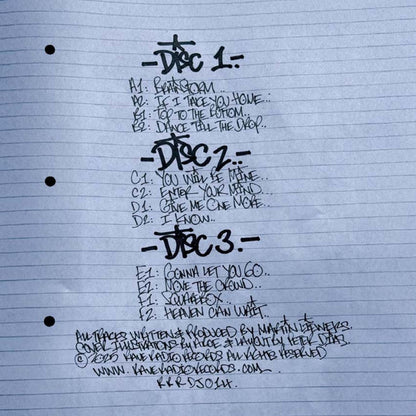 -DISC 1.-
A1: BRAINSTORM...
A2: IF I TAKE YOU HOME...
B1: TOP TO THE BOTTOM...
B2: DANCE TILL THE DROP...
-DISC 2..-
C1: YOU WILL BE MINE...
C2: ENTER YOUR MIND...
D1: GIVE ME ONE MORE...
D2: I KNOW..
-DISC 3.-
E1: GONNA LET YOU GO..
E2: MOVE THE CROWD...
F1: SQUAREBOX...
F2: HEAVEN CAN WAIT..
ALL TRACKS WRITTEN & PRODUCED BY MARTIN
COVER ILLUSTRATIONS BY & LAYOUT BY PETER DIAS.
© 2025 KANE RADIO RECORDS ALL RIGHTS RESERVED
WWW.KANERADIORECORDS.COM..
KRRDJ014.